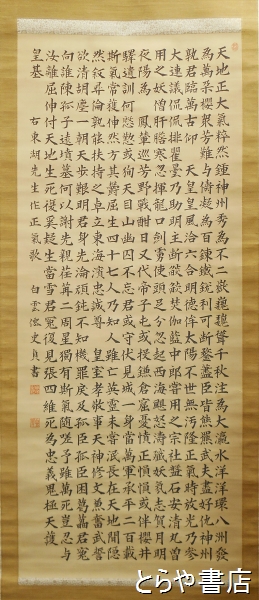 天地正大氣粹然鍾神州秀為不二嶽巍巍聳千秋注為大瀛水洋洋環八洲發
為萬朶櫻衆芳難與儔凝為百鍊鐵銳利可斷鍪藎臣皆熊羆武夫盡好仇神州
孰君臨萬古仰 天皇皇風洽六合明德侔太陽不世無汚隆正氣時放光乃參
大連議侃侃排瞿曇乃助明主斷燄燄焚伽藍中郎嘗用之宗社磐石安清丸嘗
用之妖僧肝膽寒忽揮龍口劍虜使頭足分忽起西海颶怒濤殱妖氛志賀月明
夜陽為 鳳輦巡芳野戰酣日又代帝子屯或投鎌倉窟憂憤正愪愪或伴櫻井
驛遺訓何慇懃或殉天目山幽囚不忘君或守伏見城一身當萬軍承平二百歲
斯氣常獲伸然方其鬱屈生四十七人乃知人雖亡英靈未嘗泯長在天地間隱
然敘彝倫孰能扶持之卓立東海濱忠誠尊 皇室孝敬事天神修文兼奮武誓
欲清胡塵一朝天步艱邦君身先淪頑鈍不知機罪戾及孤臣孤臣困葛藟君冤
向誰陳孤子遠墳墓何以謝先親荏苒二周星獨有斯氣隨嗟予雖萬死豈忍與
汝離屈伸付天地生死復奚疑生當雪君冤復見張四維死為忠義鬼極天護
皇基 右東湖先生作正氣歌 白雲 史貞書
とらや書店